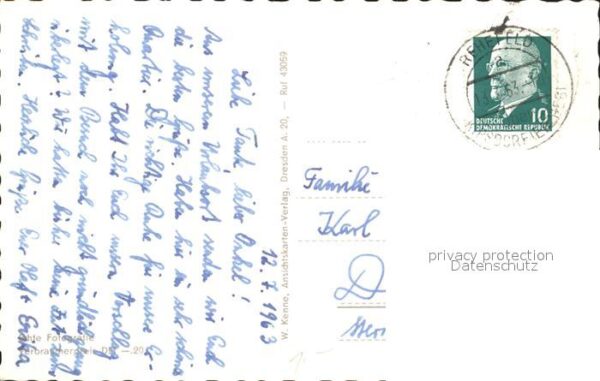 12.7.1963
Liebe Tante, lieber Onkel!
Aus unserem Urlaubsort senden wir Euch
die besten Grüße. Haben hier ein sehr schönes
Quartier. Die richtige Ruhe für unsere Er-
holung. Habt Ihr Euch unsern Vorschlag
mit dem Besuch noch nicht gründlich
überlegt? Wir hatten bisher keine Zeit zum
Schreiben. Herzliche Grüße Eure
W. Kenne, Ansichtskarten-Verlag, Dresden A. 20, — Ruf 43059
Echte Fotografie
Verbraucherpreis DM —.20
REHEFELD
10
DEUTSCHE
DEMOKRATISCHE REPUBLIK
Familie
Karl
D
privacy protection
Datenschutz